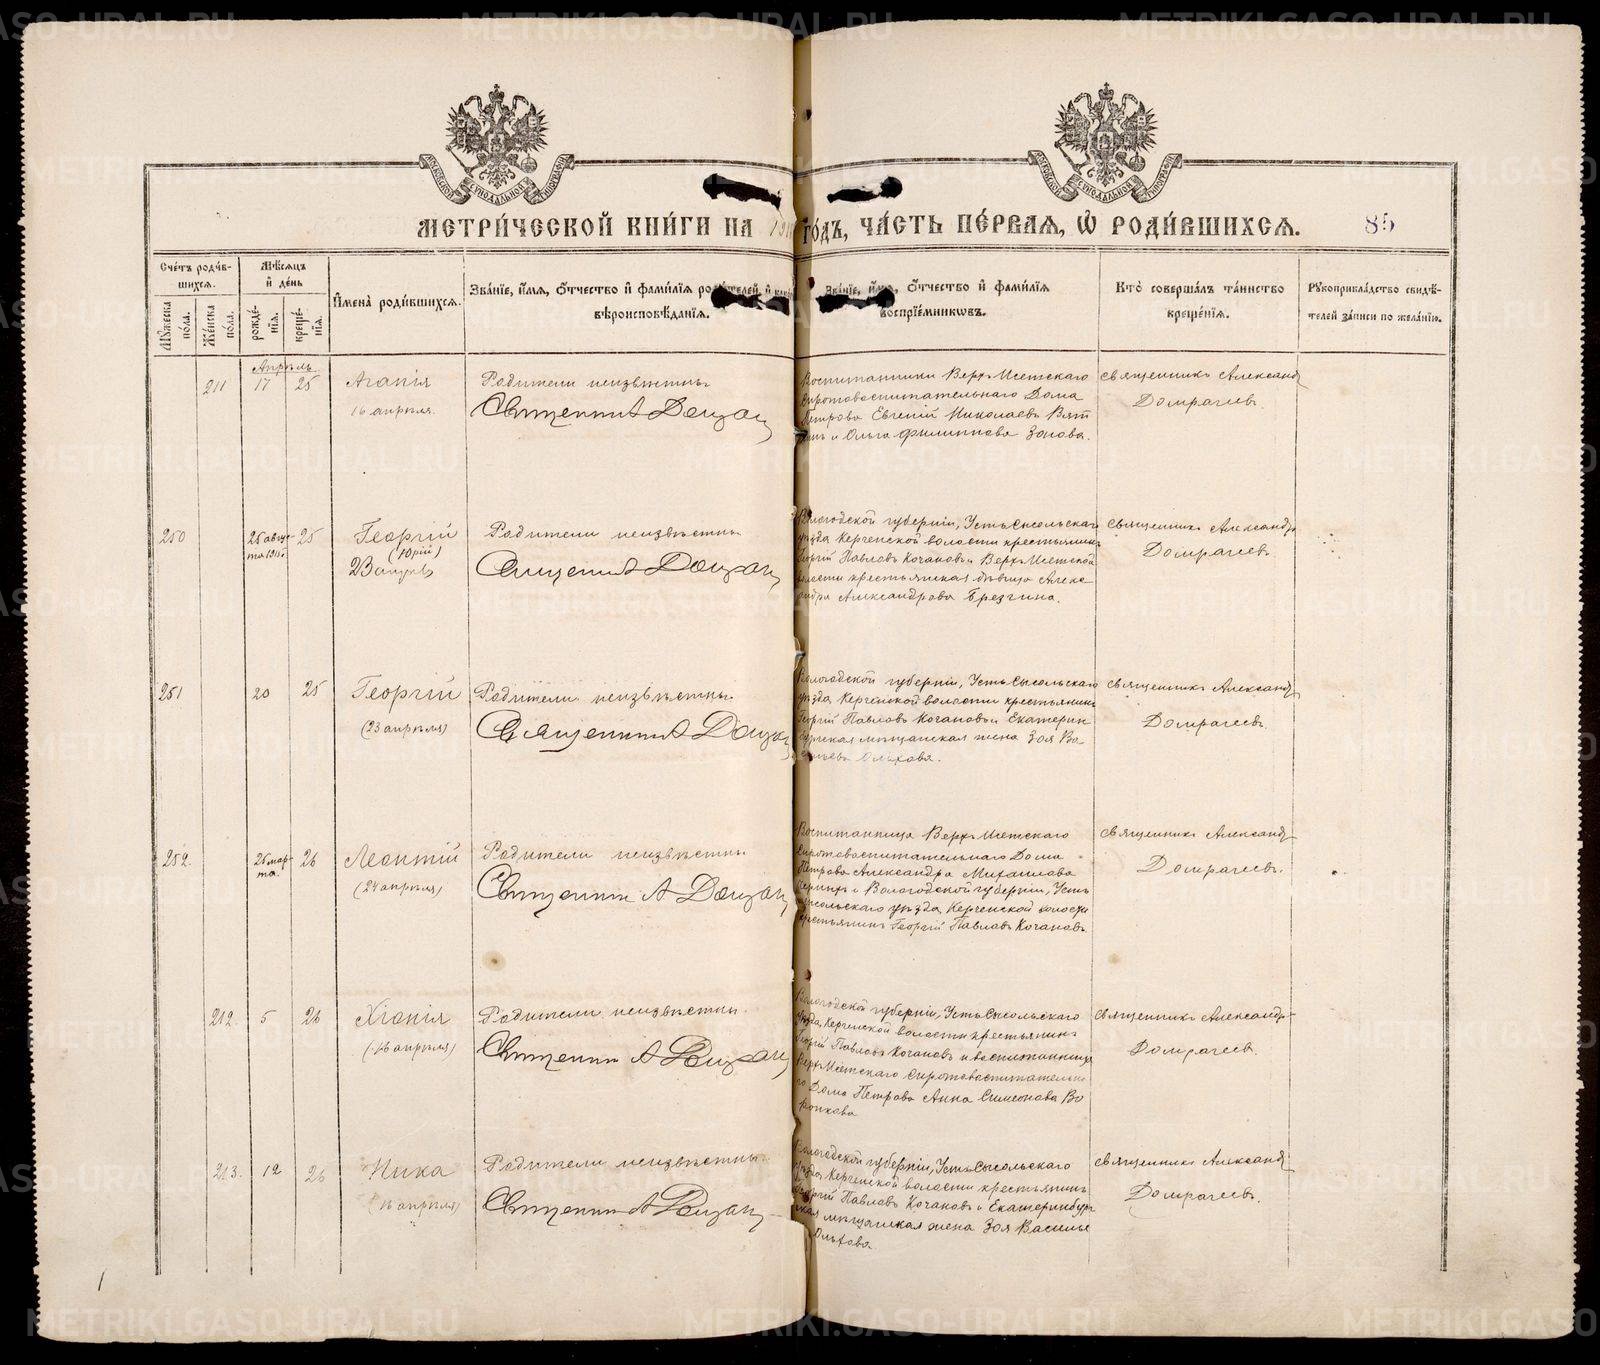 МОСКОВСКОЙ СѴНОДАЛЬНОЙ ТИПОГРАФІИ
МОСКОВСКОЙ СѴНОДАЛЬНОЙ ТИПОГРАФІИ
МЕТРИ́ЧЕСКОЙ КНИ́ГИ НА
ГО́ДЪ, ЧА́СТЬ ПЕ́РВАЯ, Ѡ РОДИ́ВШИХСЯ.
85
Сче́тъ роди́в-
шихся.
Мѣ́сяцъ
и де́нь
Мꙋ́жеска по́ла.
Же́нска по́ла.
рожде́-нїя.
креще́-нїя.
И҆мена̀ роди́вшихся.
Зва́нїе, и҆́мя, ѻ҆́тчество и҆ фами́лїя
вѣроисповѣ́данїя.
Зва́нїе, и҆́мя, ѻ҆́тчество и҆ фами́лїя
воспрїе́мникωвъ.
Кто̀ соверша́лъ та́инство
креще́нїя.
Рꙋкоприкла́дство свидѣ́-
телей за́писи по жела́нїю.
Апрѣль
211 17 25 Агапія
16 апрѣля.
Родители неизвѣстны.
Священник А Домрач
Воспитанники Верх-Исетскаго
Сиротовоспитательнаго Дома
Петрова Евгеній Николаевъ Вят
и Ольга Филиппова Зонова.
Священникъ Александръ
Домрачевъ.
250 25 25 Георгій
(Юрій)
23
Родители неизвѣстны
Священник А Домрач
Вологодской губерніи, Усть-Сысольскаго
уѣзда Керченской волости крестьянинъ
Георгій Павловъ Кочановъ и Верх-Исетской
волости крестьянская дѣвица Алекс-
андра Александрова Брезгина.
Священникъ Александръ
Домрачевъ
251 20 25 Георгій
(23 апрѣля)
Родители неизвѣстны.
Священник А Домрач
Вологодской губерніи, Усть-Сысольскаго
уѣзда Керченской волости крестьянинъ
Георгій Павловъ Кочановъ и Екатерин-
бургская мѣщанская жена Зоя Ва-
сильева Ольхова.
Священникъ Александръ
Домрачевъ
252 25 мар-та. 26 Леонтій
(24 апрѣля)
Родители неизвѣстны
Священник А Домрач
Воспитанница Верх-Исетскаго
Сиротовоспитательнаго Дома
Петрова Александра Михаилова
и Вологодской губерніи, Усть
Сысольскаго уѣзда, Керченской волости
крестьянинъ Георгій Павловъ Кочановъ.
Священникъ Александръ
Домрачевъ.
212. 5 26 Хіонія
(16 апрѣля)
Родители неизвѣстны.
Священник А Домрач
Вологодской губерніи, Усть-Сысольскаго
уѣзда, Керченской волости крестьянинъ
Георгій Павловъ Кочановъ и воспитанница
Верх-Исетскаго Сиротовоспитательна-
го Дома Петрова Анна Симеонова Во
ронкова
Священникъ Александръ
Домрачевъ.
213. 12 26 Ника
(16 апрѣля)
Родители неизвѣстны.
Священник А Домрач
Вологодской губерніи, Усть-Сысольскаго
уѣзда, Керченской волости крестьянинъ
Георгій Павловъ Кочановъ и Екатеринбург
ская мѣщанская жена Зоя Василье
Ольхова.
Священникъ Александръ
Домрачевъ.
METRIKI.GASO-URAL.RU